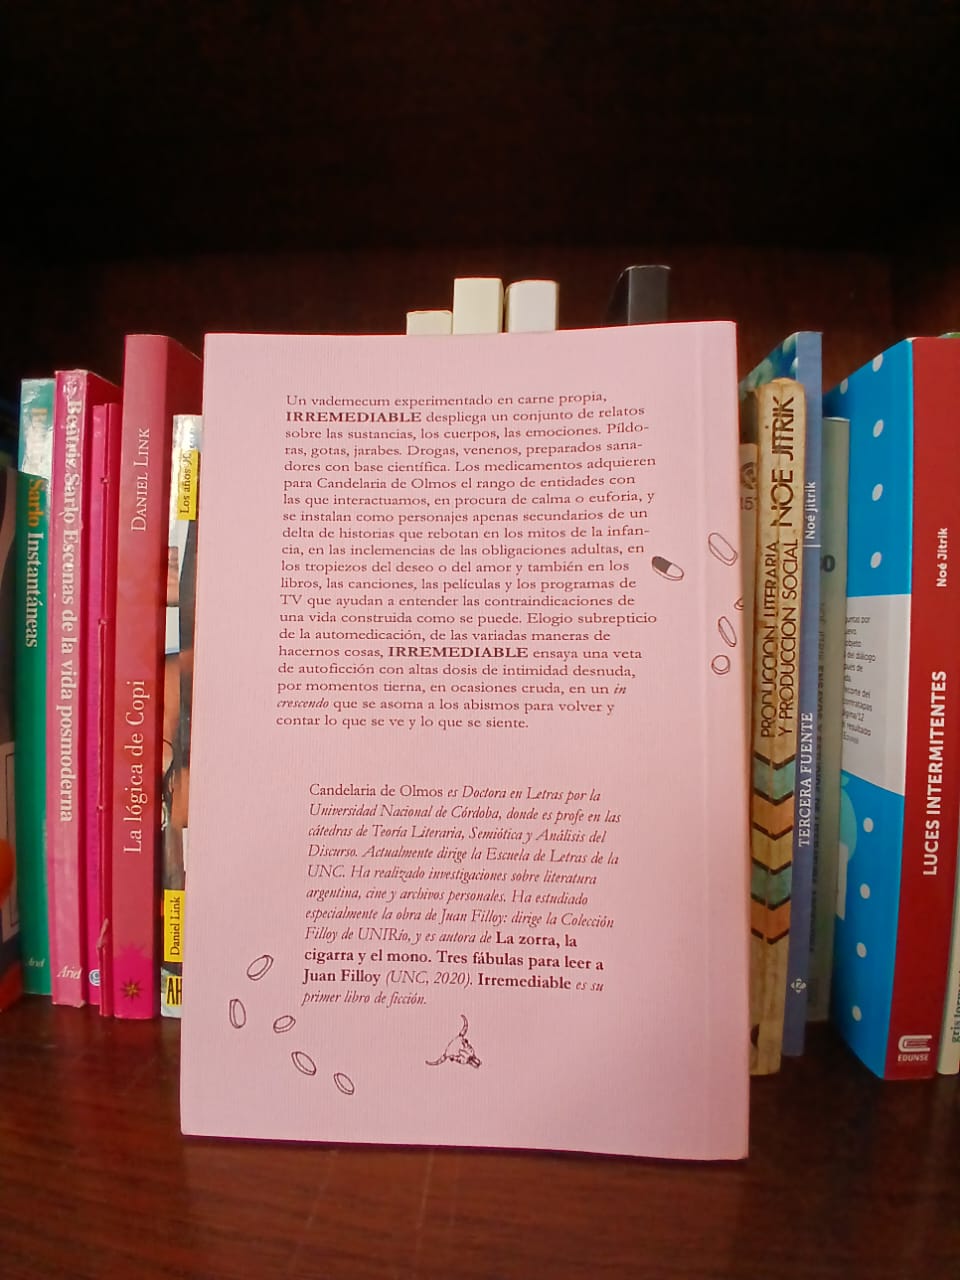 Un vademecum experimentado en carne propia,
IRREMEDIABLE despliega un conjunto de relatos
sobre las sustancias, los cuerpos, las emociones. Píldo-
ras, gotas, jarabes. Drogas, venenos, preparados sana-
dores con base científica. Los medicamentos adquieren
para Candelaria de Olmos el rango de entidades con
las que interactuamos, en procura de calma o euforia, y
se instalan como personajes apenas secundarios de un
delta de historias que rebotan en los mitos de la infan-
cia, en las inclemencias de las obligaciones adultas, en
los tropiezos del deseo o del amor y también en los
libros, las canciones, las películas y los programas de
TV que ayudan a entender las contraindicaciones de
una vida construida como se puede. Elogio subrepticio
de la automedicación, de las variadas maneras de
hacernos cosas, IRREMEDIABLE ensaya una veta
de autoficción con altas dosis de intimidad desnuda,
por momentos tierna, en ocasiones cruda, en un in
crescendo que se asoma a los abismos para volver y
contar lo que se ve y lo que se siente.
Candelaria de Olmos es Doctora en Letras por la
Universidad Nacional de Córdoba, donde es profe en las
cátedras de Teoría Literaria, Semiótica y Análisis del
Discurso. Actualmente dirige la Escuela de Letras de la
UNC. Ha realizado investigaciones sobre literatura
argentina, cine y archivos personales. Ha estudiado
especialmente la obra de Juan Filloy: dirige la Colección
Filloy de UNIRío, y es autora de La zorra, la
cigarra y el mono. Tres fábulas para leer a
Juan Filloy (UNC, 2020). Irremediable es su
primer libro de ficción.
Sarlo Instantáneas
Ariel
Beatriz Sarlo Escenas de la vida posmoderna
Ariel
DANIEL LINK
La lógica de Copi
Los años 90
Daniel Link
AH
NOÉ JITRIK
PRODUCCION LITERARIA
Y PRODUCCION SOCIAL
Noé Jitrik
TERCERA FUENTE
Noé Jitrik
LUCES INTERMITENTES
EDUNSE